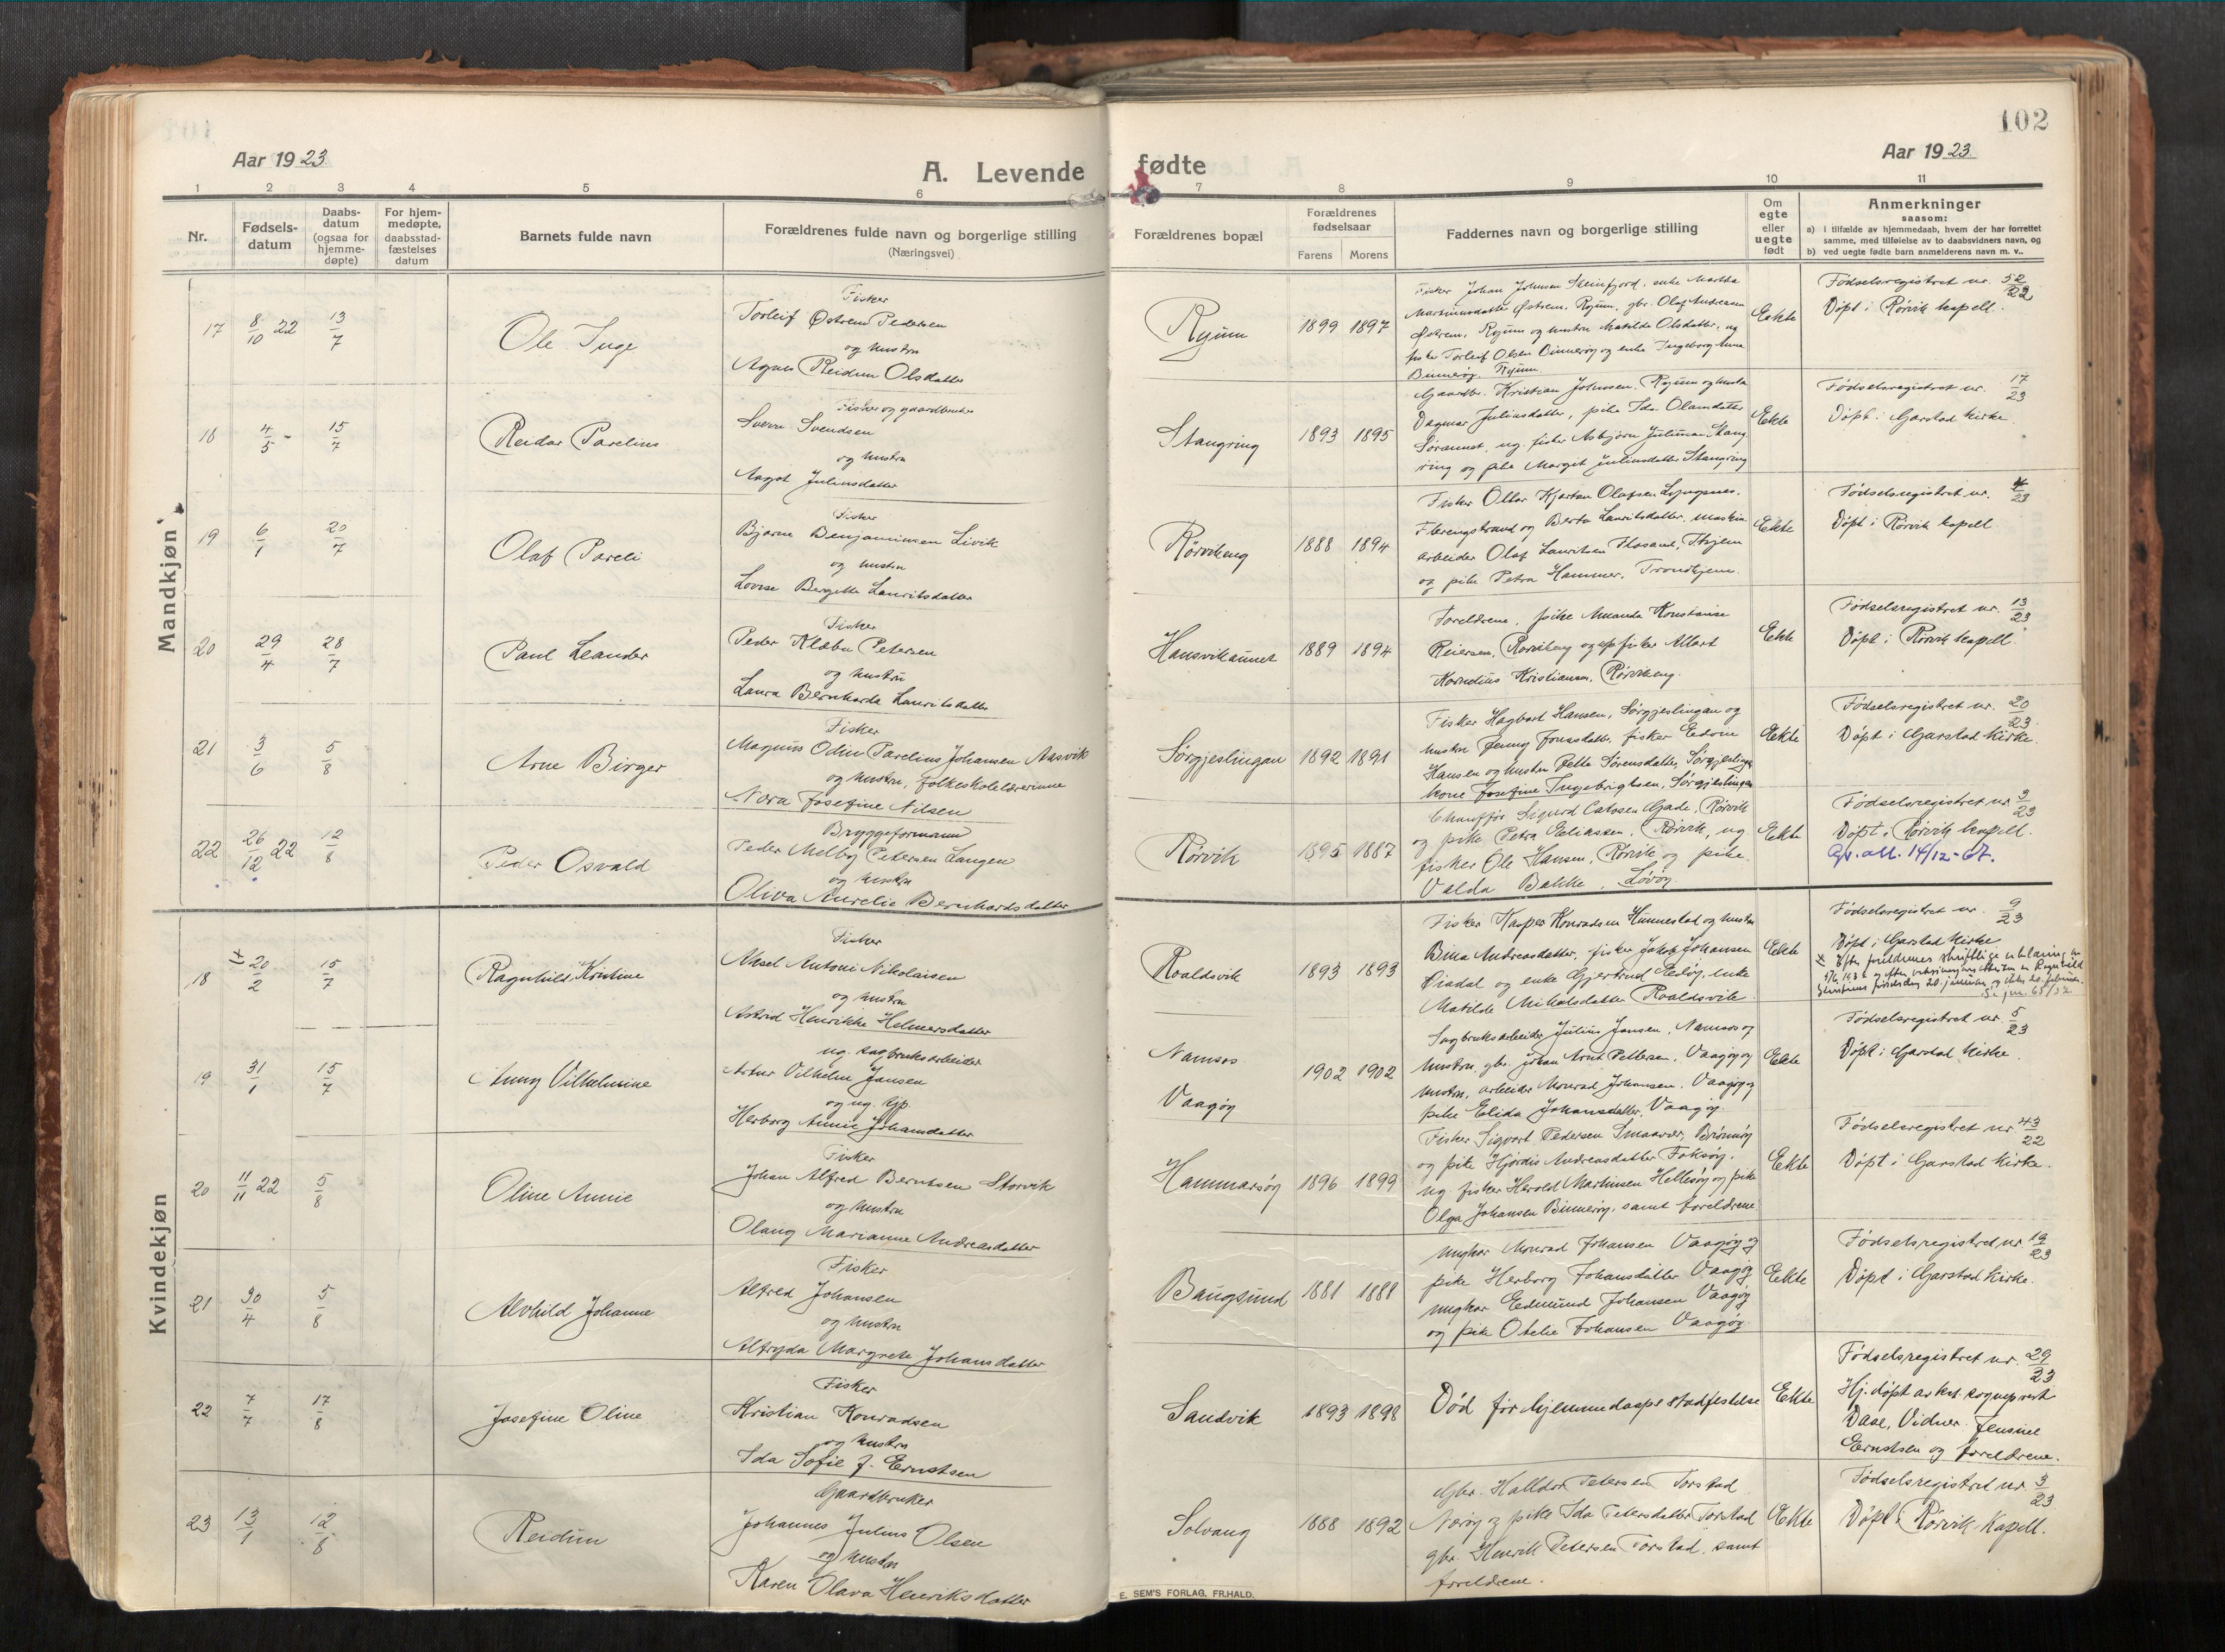 102
Aar 1923
A. Levende
fødte
Aar 1923
1 2 3 4 5 6 7 8 9 10 11
Nr.
Fødsels-
datum
Daabs-
datum
(ogsaa for
hjemme-
døpte)
For hjem-
medøpte,
daabsstad-
fæstelses
datum
Barnets fulde navn
Forældrenes fulde navn og borgerlige stilling
(Næringsvei)
Forældrenes bopæl
Forældrenes
fødselsaar
Farens Morens
Faddernes navn og borgerlige stilling
Om
egte
eller
uegte
født
Anmerkninger
saasom:
a) i tilfælde av hjemmedaab, hvem der har forrettet
samme, med tilføielse av to daabsvidners navn, og
b) ved uegte fødte barn anmelderens navn m. v..
Mandkjøn
17 8/10 22 13/7
Ole Inge
Fisker
Torleif Østrem Pedersen
og hustru
Agnes Reidun Olsdatter
Ryum
1899 1897
Fisker Johan Johnsen Steinfjord, enke Martha
Martinusdatter Østrem, Ryum, gbr. Olaf Andreasen
Østrem, Ryum og hustru Matilde Olsdatter, ug
fisker Torleif Olsen Binnerøy og enke Ingeborg Anna
Binnerøy, Ryum.
Ekte
Fødselsregistret nr. 52/22
Døpt i Rørvik kapell.
18 4/5 - 15/7
Reidar Parelius
Fisker og gaardbruker
Sverre Svendsen
og hustru
Aagot Juliusdatter
Stangring
1893 1895
Gaardbr. Kristian Johnsen, Ryum og hustru
Dagmar Juliusdatter, pike Ida Olamdatter
ug. fisker Asbjørn Juliusen Stang
ring og pike Margit Juliusdatter Stangring
Ekte
Fødselsregistret nr. 17/23
Døpt i Garstad kirke
19 6/1 20/7
Olaf Pareli
Fisker
Bjarne Benjaminsen Livik
og hustru
Lovise Bergitte Lauritsdatter
Rørvikeng
1888 1894
Fisker Oltar Kjartan Olafsen Lyngsnes,
Flerengstrand og Berta Lauritsdatter, maskin
arbeider Olaf Lauritsen Thjem
og pike Petra Hammer, Trondhjem.
Ekte
Fødselsregistret nr. 4/23
Døpt i Rørvik kapell
20 29/4 28/7
Paul Leander
Fisker
Peder Klæbu Petersen
og hustru
Laura Bernharda Lauritsdatter
Hansvikaunet
1889 1894
Foreldrene, pike Amanda Konstanse
Reiersen, Rørvikeng og fisker Albart
Kornelius Kristiansen, Rørvikeng.
Ekte
Fødselsregistret nr. 13/23
Døpt i Rørvik kapell
21 3/6 5/8
Arne Birger
Fisker
Magnus Odin Parelius Johansen Aasvik
og hustru, folkeskolelærerinne
Nora Josefine Nilsen
Sørgjeslingan
1892 1891
Fisker Hagbart Hansen, Sørgjeslingan og
hustru Jenny Jonasdatter, fisker Eedom
Hansen og hustru Jette Sørensdatter, Sørgjeslingan
kone Josefine Ingebrigtsen, Sørgjeslingan
Ekte
Fødselsregistret nr. 20/23.
Døpt i Garstad kirke.
22 26/12 22 12/8
Peder Osvald
Bryggeformann
Peder Melbÿ Petersen Langen
og hustru
Oliva Aurelie Bernhardsdatter
Rørvik
1895 1887
Chauffør Sigurd Gade, Rørvik
og pike Petra Eeliassen, Rørvik, ug
fisker Ole Hansen, Rørvik og pike
Valda Bakke, Løvøy.
Ekte
Fødselsregistret nr. 3/23
Døpt i Rørvik kapell.
Gr. att. 14/12-67.
Kvindekjøn
18 x 20/2 15/7
Ragnhild Kristine
Fisker
Aksel Antoni Nikolaisen
og hustru
Astrid Henrikke Helmersdatter
Roaldsvik
1893 1893
Fisker Kasper Konradsen Hunnestad og hustru
Bina Andreasdatter, fisker Jakob Johansen
Øiadal og enke Gjertrud enke
Matilde Mikalsdatter Roaldsvik
Ekte
Fødselsregistret nr. 9/23
Døpt i Garstad kirke
x Efter foreldrenes skriftlige erklæring av
er Ragnhild
Kristines fødselsdag 20. januar og ikke 20. februar.
Se jnr. 65/32
19 31/1 15/7
Anny Vilhelmine
ug. sagbruksarbeider
Artur Vilhelm Jansen
og ug. tjp.
Herborg Annie Johansdatter
Namsos
Vaagøy
1902 1902
Sagbruksarbeider Julius Jansen, Namsos og
hustru, gbr. Johan Arnt Pettersen, Vaagøy og
hustru, arbeider Konrad Johansen, Vaagøy og
pike Elida Johansdatter, Vaagøy.
Ekte
Fødselsregistret nr. 5/23
Døpt i Garstad kirke.
20 11/11 22 5/8
Oline Annie
Fisker
Johan Alfred Berntsen Storvik
og hustru
Olaug Marianne Andreasdatter
Hammarsøy
1896 1899
Fisker Sigvart Pedersen Smaavær, Brønnøy
og pike Hjørdis Andreasdatter Foksøy,
ug. fisker Herold Martinsen Hellesøy og pike
Olga Johansen Binnerøy, samt foreldrene.
Ekte
Fødselsregistret nr 43/22
Døpt i Garstad kirke.
21 30/4 5/8
Alvhild Johanne
Fisker
Alfred Johansen
og hustru
Alfryda Margrete Johansdatter
Baugsund
1881 1888
Ungkar Konrad Johansen Vaagøy og
pike Herborg Johansdatter Vaagøy
ungkar Eedmund Johansen Vaagøy
og pike Otelie Johansen Vaagøy.
Ekte
Fødselsregistret nr. 19/23
Døpt i Garstad kirke.
22 7/7 17/8
Josefine Oline
Fisker
Kristian Konradsen
og hustru
Ida Sofie J. Ernstsen
Sandvik
1893 1898
Død før hjemmedaaps stadfestelse
Ekte
Fødselsregistret nr. 29/23
Hj. døpt av kst. sogneprest
Daae, Vidner: Jensine
Eernstsen og foreldrene.
23 13/1 12/8
Reidun
Gaardbruker
Johannes Julius Olsen
og hustru
Karen Olava Henriksdatter
Solvang
1888 1892
Gbr. Halldor Petersen Torstad
Nærøy og pike Ida Petersdatter Torstad
gbr. Henrik Petersen Torstad, samt
foreldrene.
Ekte
Fødselsregistret nr. 3/23
Døpt i Rørvik kapell.
E. SEM'S FORLAG, FR.HALD.